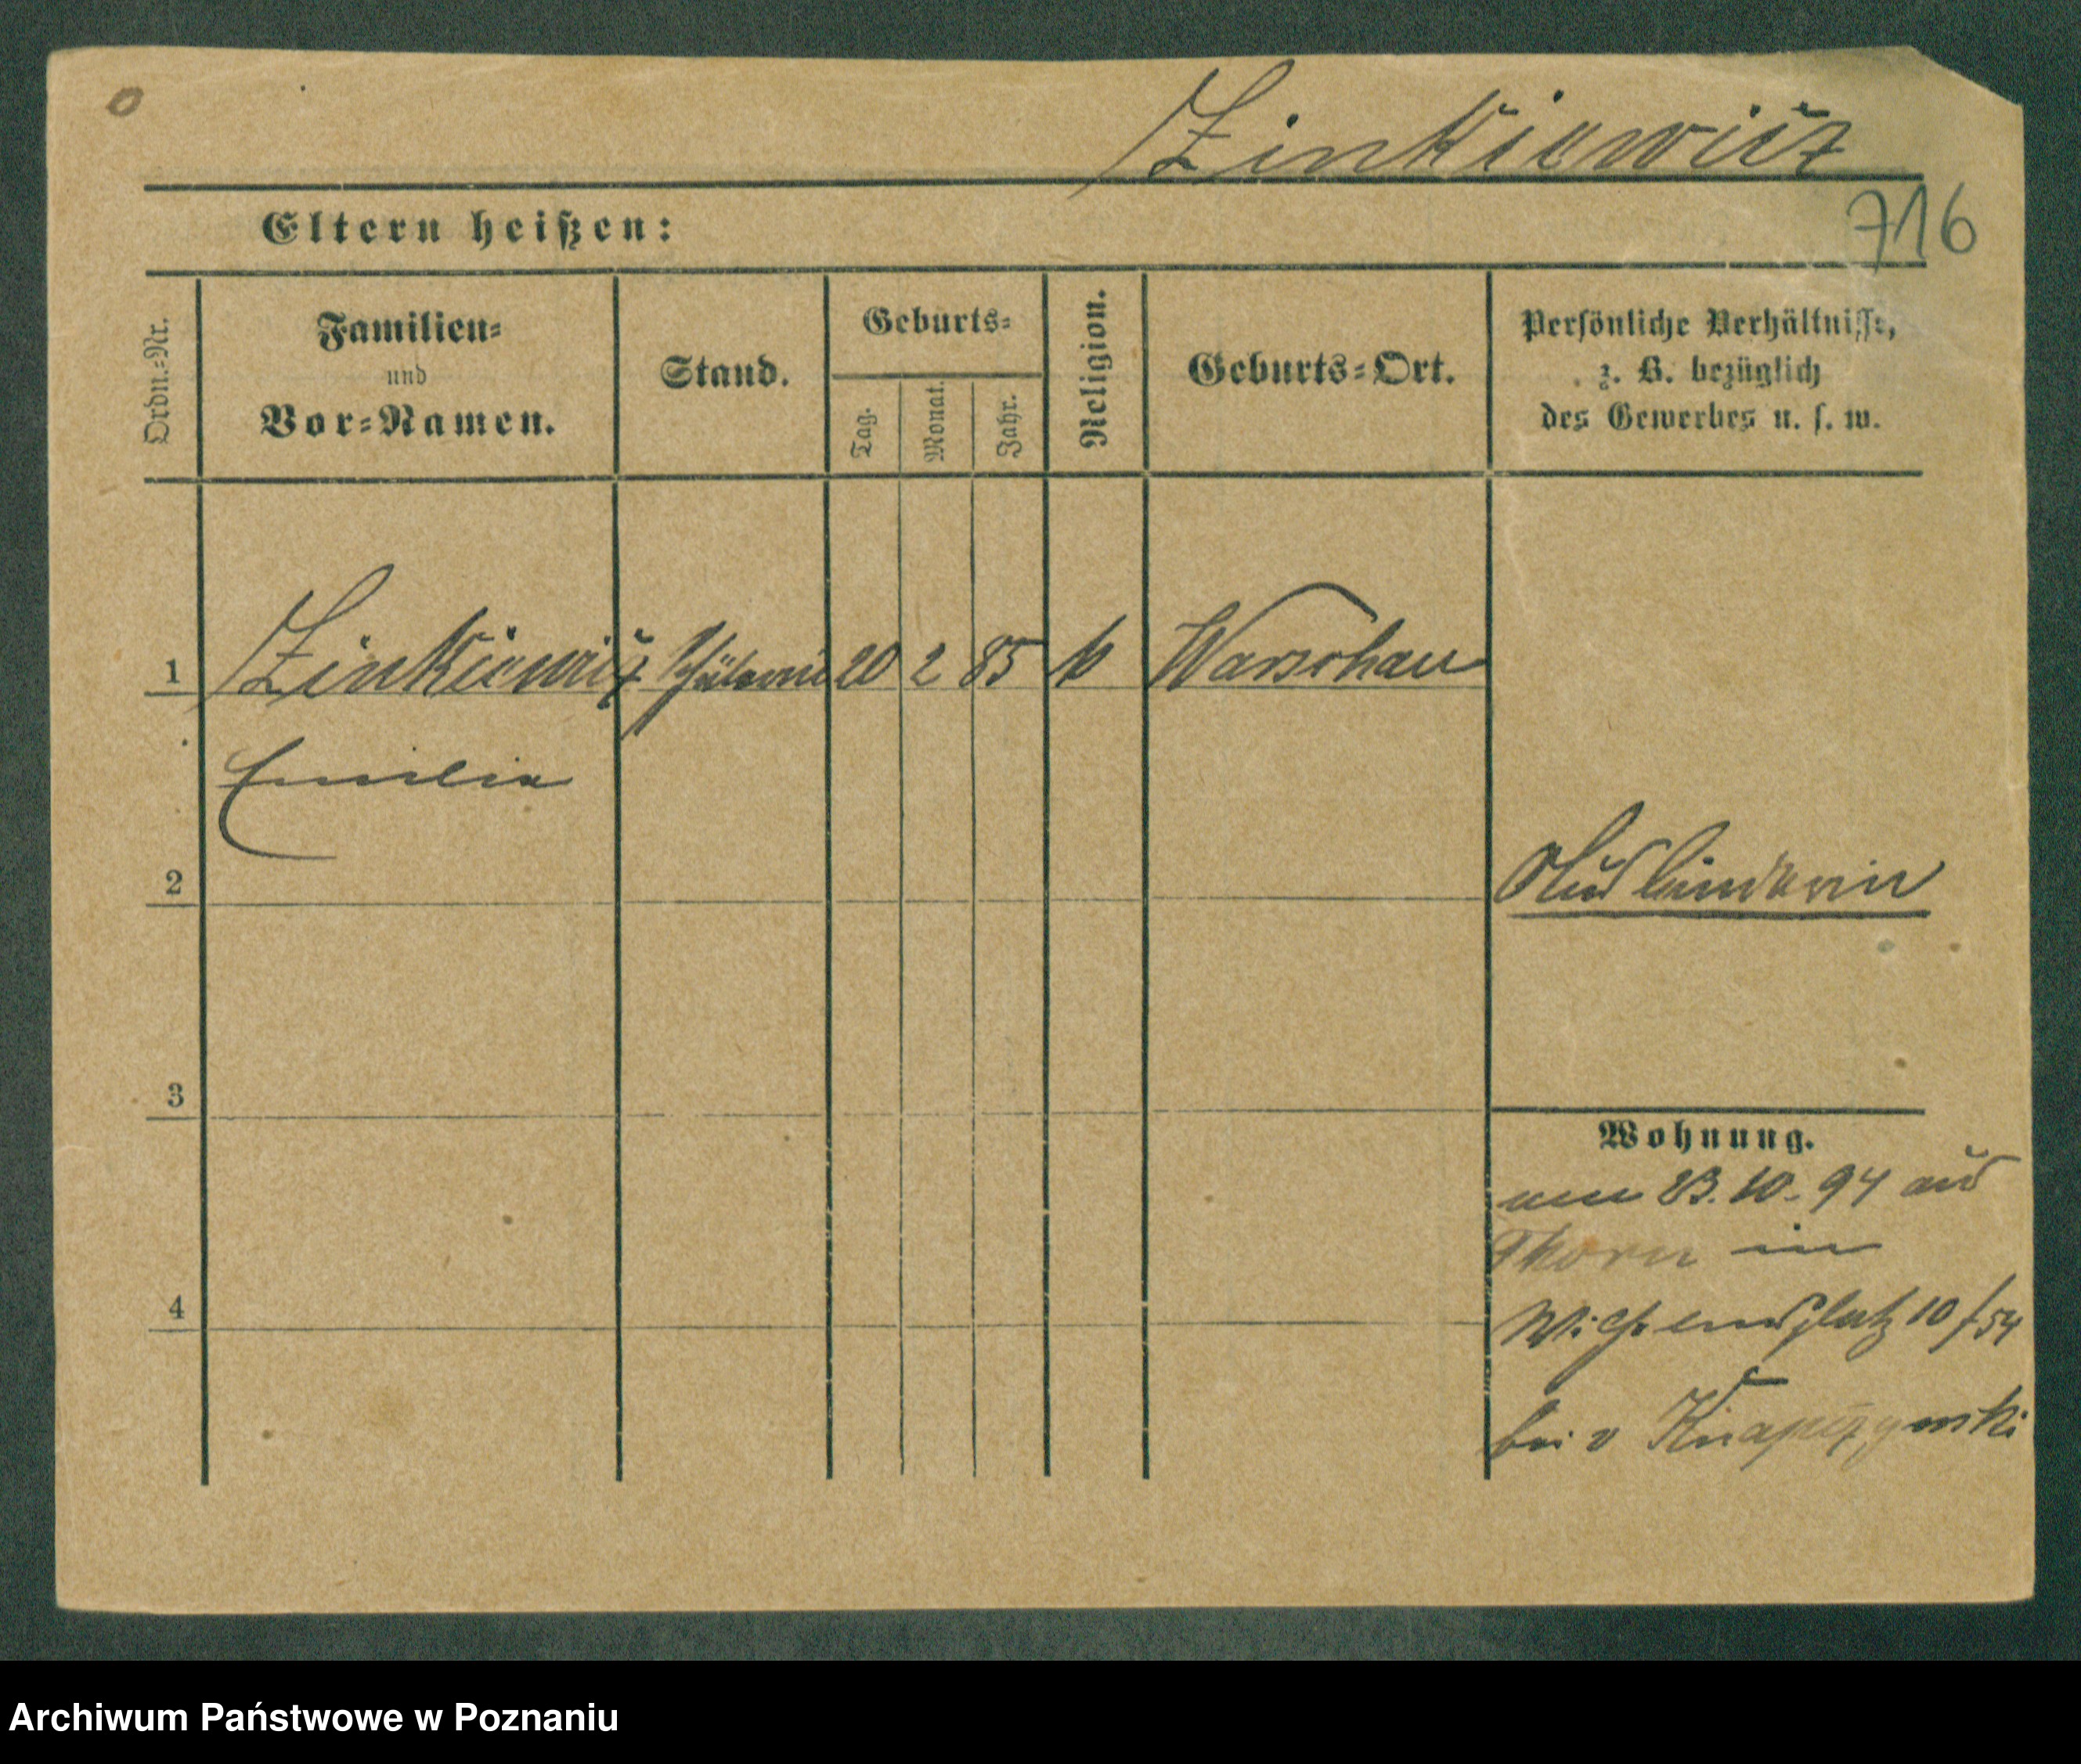 Zinkiewicz
716
Eltern heißen:
Ordn.-Nr.
Familien-
und
Vor-Namen.
Stand.
Geburts-
Tag.
Monat.
Jahr.
Religion.
Geburts-Ort.
Persönliche Verhältnisse,
z. B. bezüglich
des Gewerbes u. s. w.
1 Zinkiewicz Schülerin 20 2 85 k Warschau
Emilia
2
Ausländerin
3
Wohnung.
23.10.94 aus
Thorn in
4
Wilhelmsplatz 10 / 54
bei v Knapczynski
Archiwum Państwowe w Poznaniu